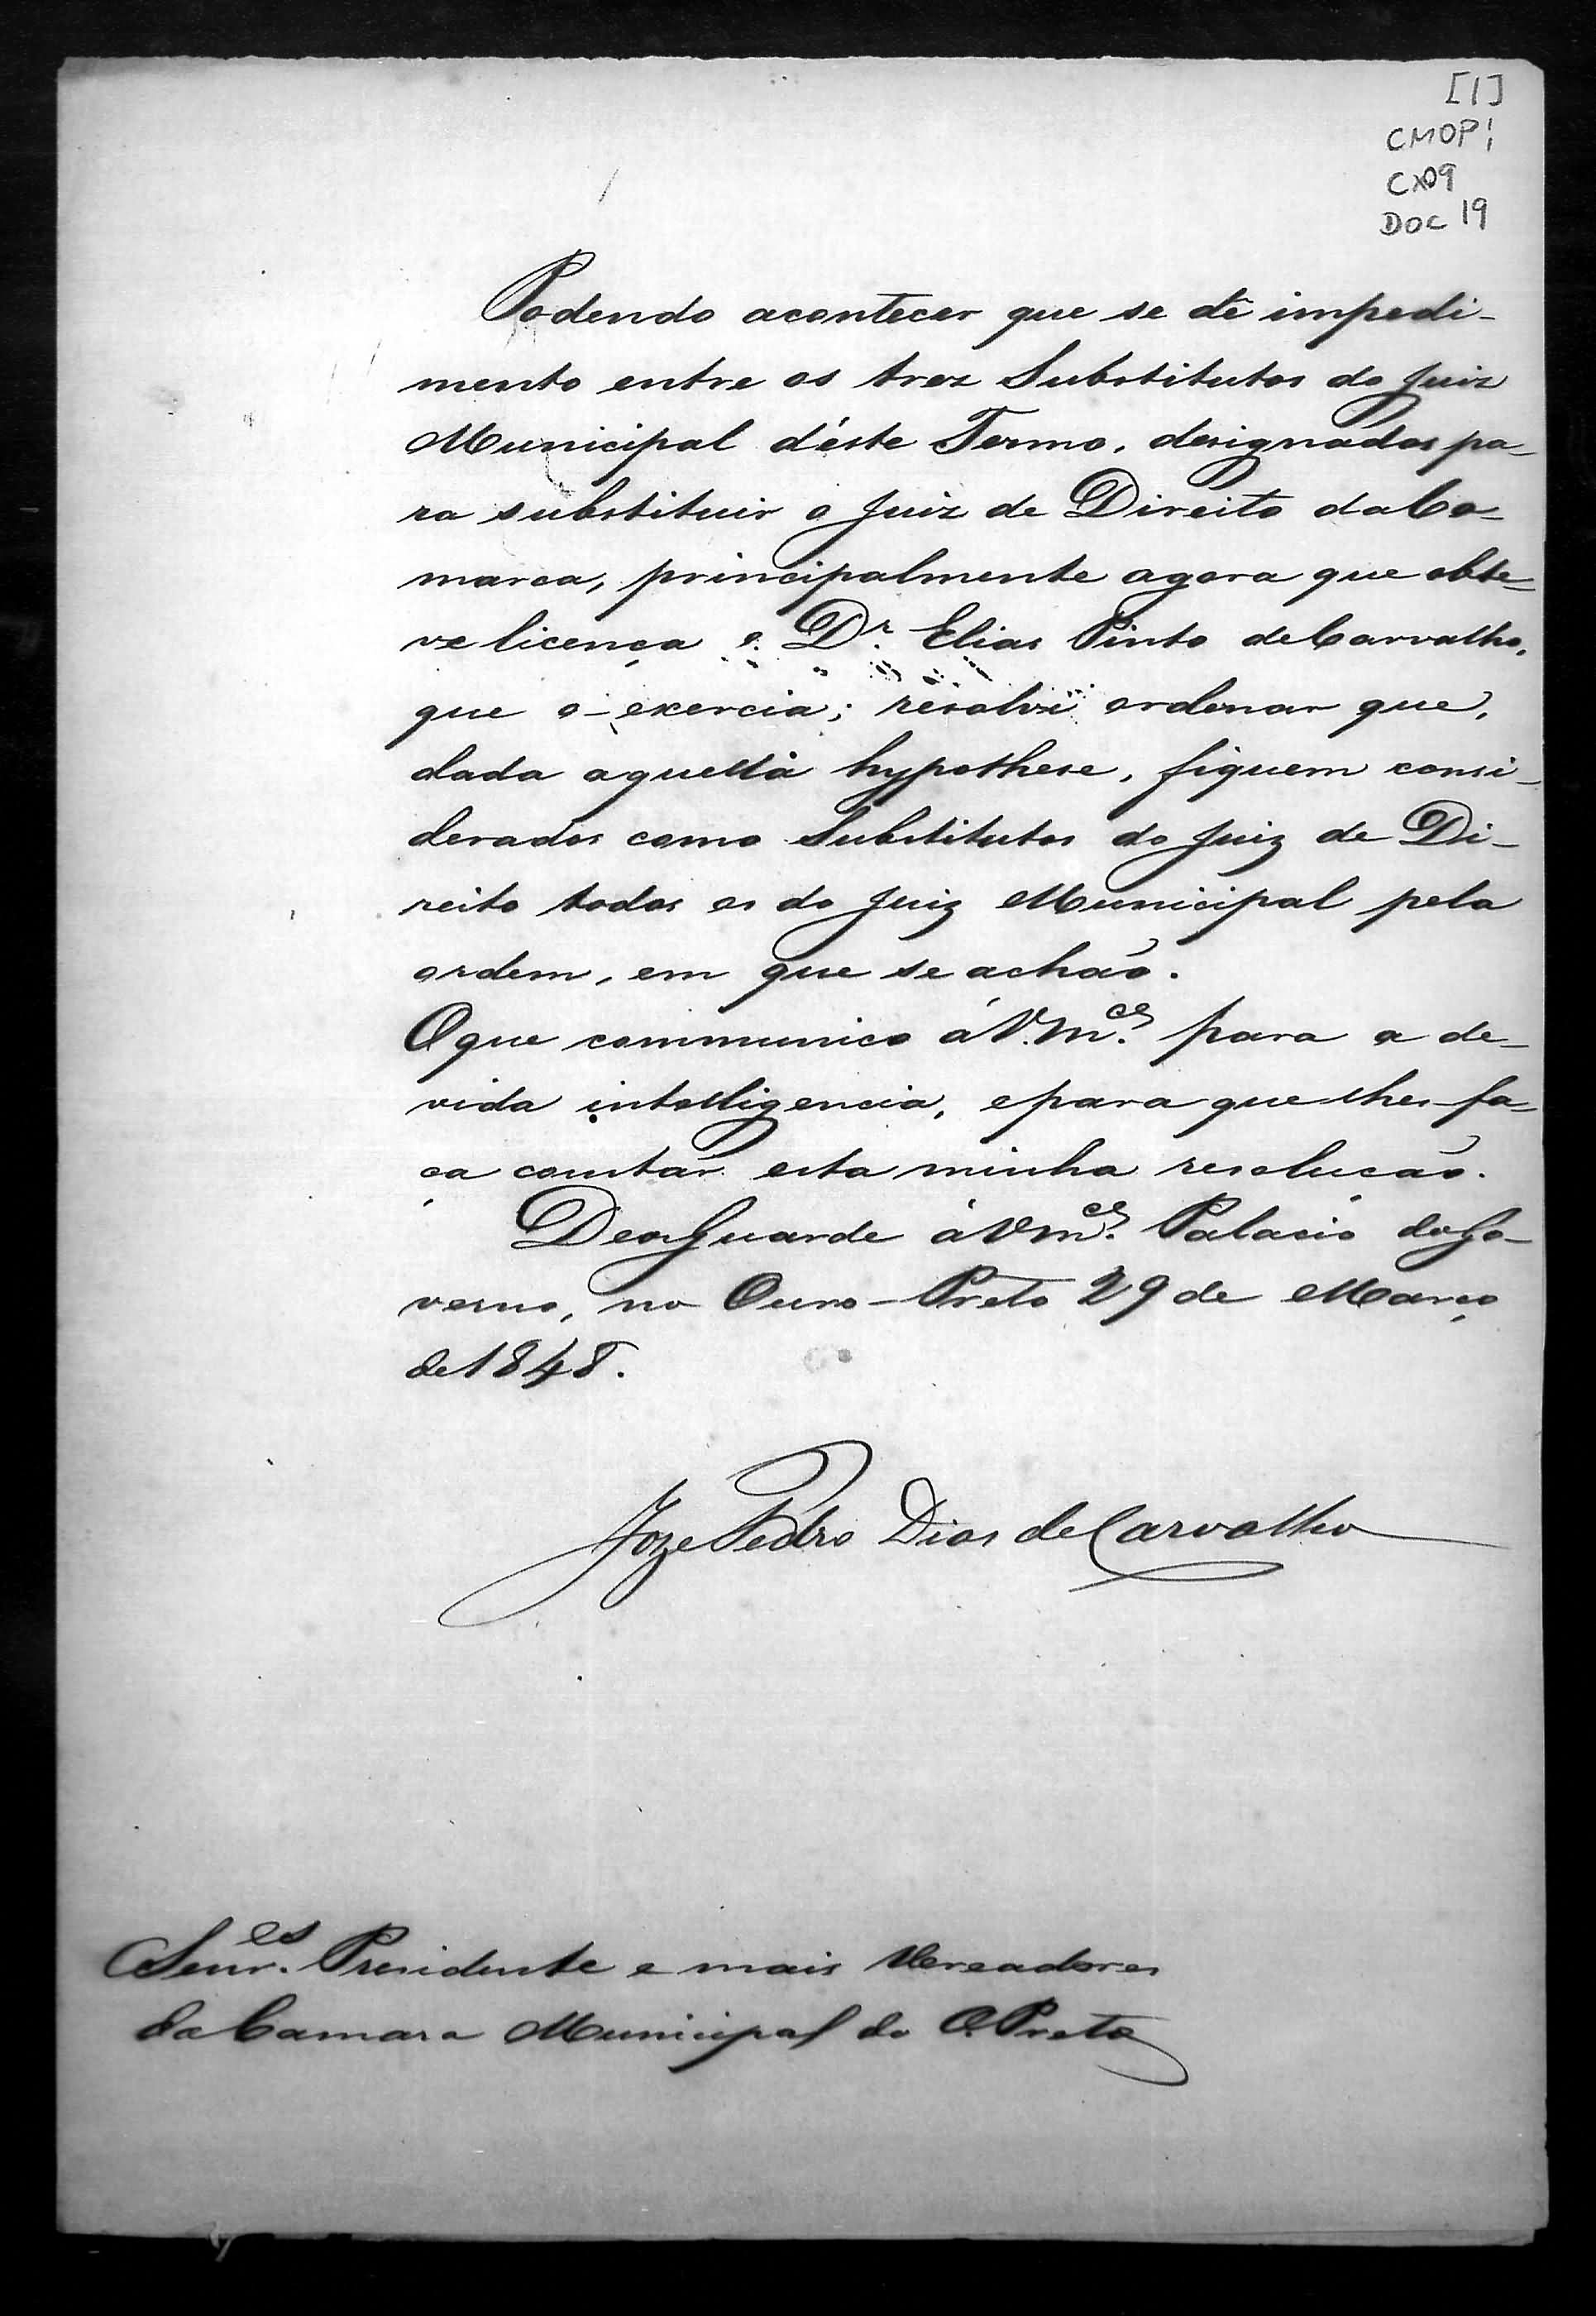 [1]
CMOP1
CX09
DOC 19
Podendo acontecer que se dê impedi-
mento entre os trez Substitutos do Juiz
Municipal d'éste Termo, designados pa-
ra substituir o Juiz de Direito da Co-
marca, principalmente agora que obte-
ve licença o Dr. Elias Pinto de Carvalho,
que o exercia; resolvi ordenar que,
dada aquella hypothese, fiquem consi-
derados como Substitutos do Juiz de Di-
reito todos os do Juiz Municipal pela
ordem, em que se achão.
O que communico á V.Mces. para a de-
vida intelligencia, e para que lhes fa-
ça constar esta minha resolução.
Deos Guarde á VMces. Palacio do Go-
verno, no Ouro-Preto 29 de Março
de 1848.
Joze Pedro Dias de Carvalho
Senres. Presidente e mais Vereadores
da Camara Municipal do O. Preto